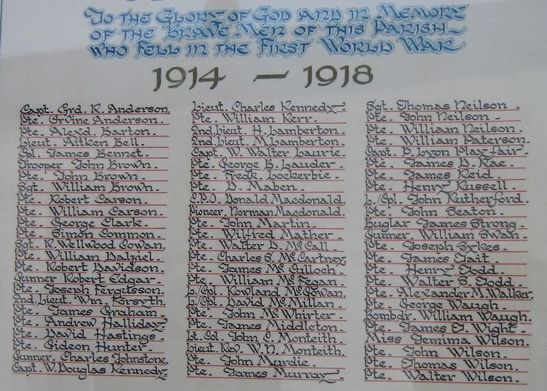 To the Glory of God and in Memory
of the Brave Men of this Parish
who fell in the First World War
1914 — 1918
Capt. Grd. R. Anderson.
Pte. Ervine Anderson.
Pte. Alexd. Barton.
Lieut. Aitken Bell.
Cpl. James Bennet.
Trooper John Brown.
Pte. John Brown.
Sgt. William Brown.
Pte. Robert Carson.
Pte. William Carson.
Pte. George Clark.
Pte. Simon Connon.
Sgt. R. Wellwood Cowan.
Pte. William Dalziel.
Pte. Robert Davidson.
Gunner Robert Edgar.
Pte. Joseph Fergusson.
2nd. Lieut. Wm. Forsyth.
Pte. James Graham.
Pte. Andrew Halliday.
Pte. David Hastings.
Pte. Gideon Hunter.
Gunner. Charles Johnstone.
Capt. W. Douglas Kennedy.
Lieut. Charles Kennedy.
Pte. William Kerr.
2nd Lieut. H. Lamberton.
2nd Lieut. M. Lamberton.
Capt. W. Walter Laurie.
Pte. George B. Lauder.
Pte. Fredk. Lockerbie.
Pte. D. Maben.
C.P.O. Donald Macdonald.
Pioneer. Norman Macdonald.
Pte. John Martin.
Pte. Wilfred Mather.
Pte. Walter D. McCall.
Pte. Charles S. McCartney.
Pte. James McCulloch.
Pte. William McFegan.
L/Cpl. Rowland McGowan.
L/Cpl. David McMillan.
Pte. John McWhirter
Pte. James Middleton.
Lt. Col. John C. Monteith.
Lieut. Rev. W. N. Monteith.
Pte. John Murdie.
Pte. James Murray.
Sgt. Thomas Neilson.
Pte. John Neilson.
Pte. William Neilson.
Pte. William Paterson.
Capt. D. Lyon Playfair.
Pte. James D. Rae.
Pte. James Reid.
Pte. Henry Russell.
L/Cpl. John Rutherford.
Pte. John Seaton.
Bugler James Strong.
Gunner. William Swan.
Pte. Joseph Sykes.
Pte. James Tait.
Pte. Henry Todd.
Pte. Walter S. Todd.
Pte. Alexander M. Walker.
Pte. George Waugh.
Bombdr. William Waugh.
Pte. James F. Wight.
Miss Jemima Wilson.
Pte. John Wilson.
Pte. Thomas Wilson.
Pte. Walter Wilson